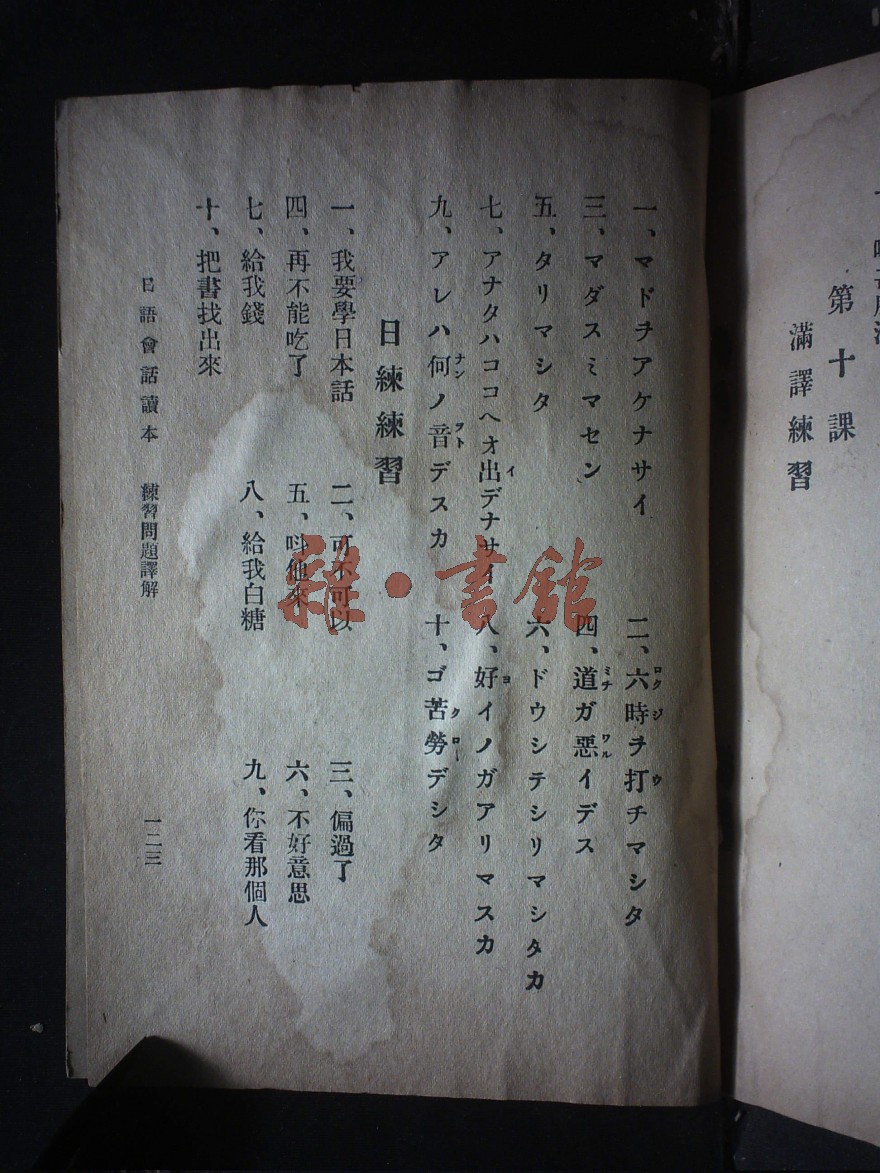 第十課
滿譯練習
一、マドヲアケナサイ
二、六時ヲ打チマシタ
三、マダスミマセン
四、道ガ惡イデス
五、タリマシタ
六、ドウシテシリマシタカ
七、アナタハココヘオ出デナサイ
八、好イノガアリマスカ
九、アレハ何ノ音デスカ
十、ゴ苦勞デシタ
日練練習
一、我要學日本話
二、可不可以
三、偏過了
四、再不能吃了
五、呌他來
六、不好意思
七、給我錢
八、給我白糖
九、你看那個人
十、把書找出來
日語會話讀本 練習問題譯解
一二三
雜·書館